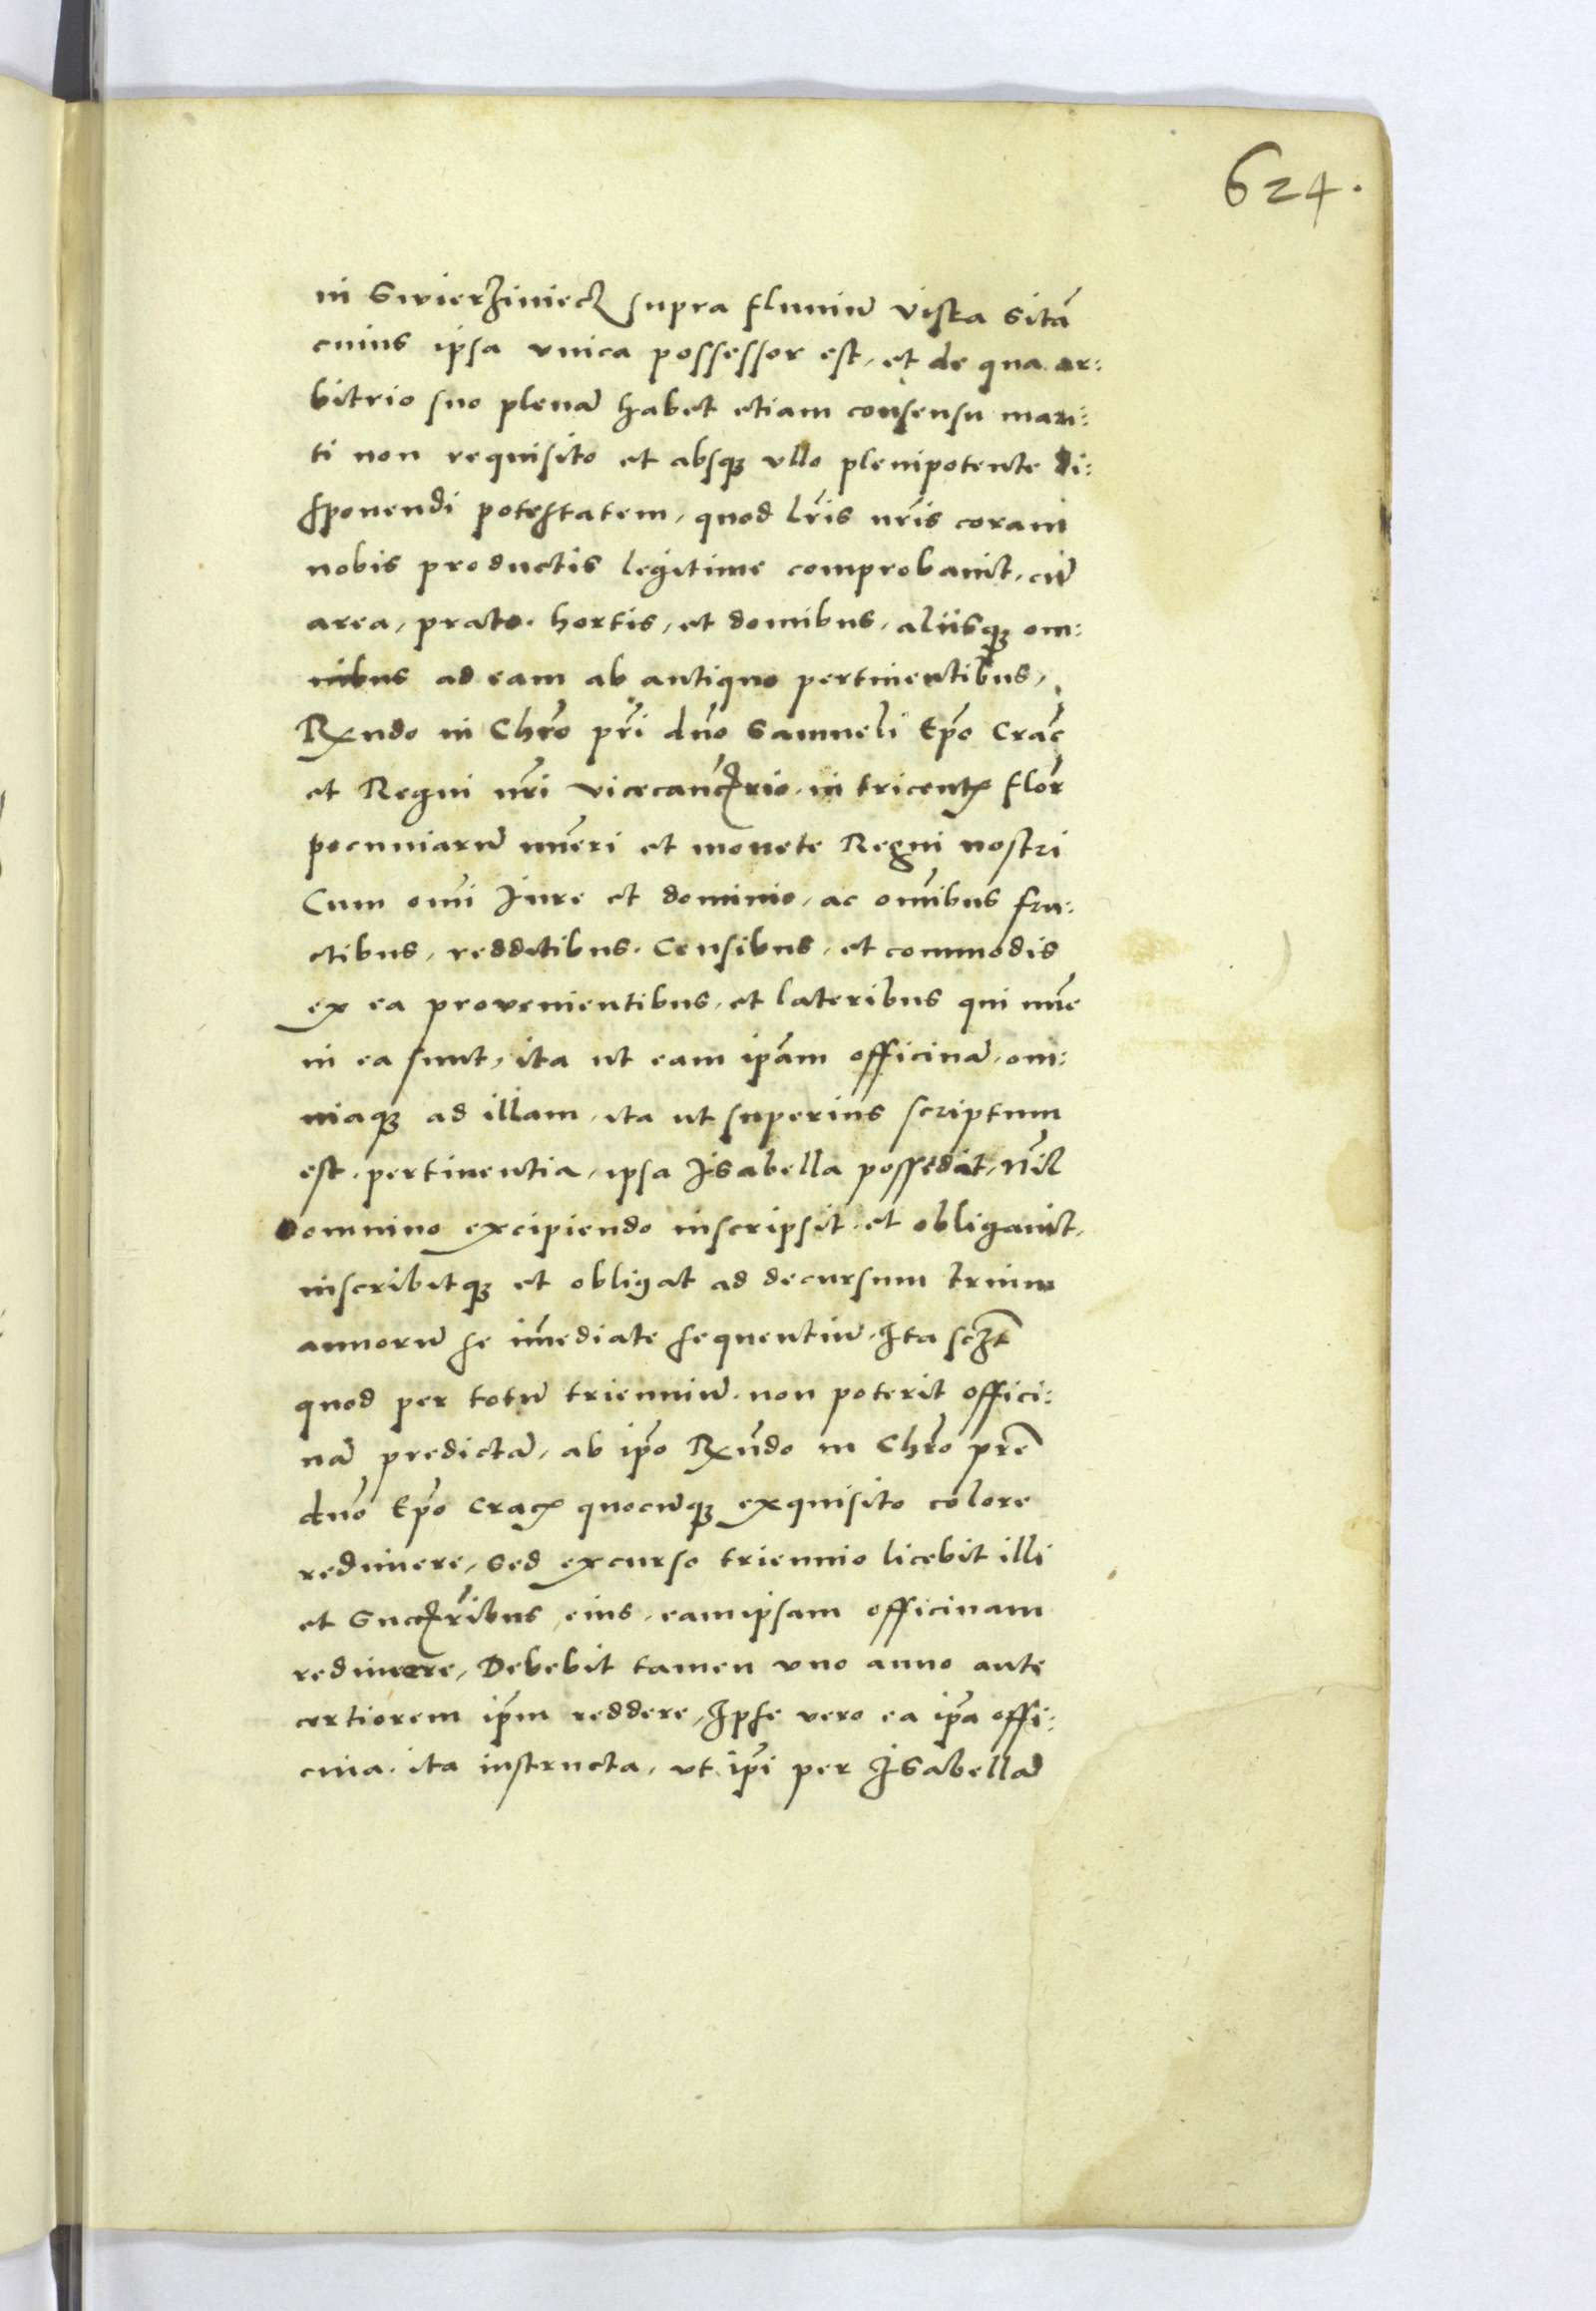 624.
in Swierziniecz supra fluuiū Visťa sitā
cuius ipsa vnica possessor est, et de qua ar:
bitrio suo plenā habet etiam consensu mari:
ti non requisito et absq3 vllo plenipotente di:
sponendi potestatem, quod lr̃is nr̃is coram
nobis productis legitime comprobauit, cū
area, prato. hortis, et domibus, aliisq3 om:
nibus ad eam ab antiquo pertinentibus,
Rx̃ndo in Chr̃o pr̃i dn̄o Samueli Ep̃o Crac̃
et Regni nr̃i vicecancr̃io. in tricent flor̃
pecuniarū nūeri et monete Regni nostri
Cum om̄i Iure et dominio, ac om̄ibus fru:
ctibus, redditibus. Censibus, et commodis
ex ea prouenientibus, et lateribus qui nūc
in ea sunt, ita ut eam ip̃am officinā, om:
niaq3 ad illam, ita ut superius scriptum
est. pertinentia, ipsa Isabella possedit, nĩl
omnino excipiendo inscripsit. et obligauit.
inscribitq3 et obligat ad decursum trium
annorū se im̄ediate sequentiū. Ita scz̃t
quod per totū trienniū. non poterit offici:
nā predictā, ab ip̃o Rx̃ndo in Chr̃o pr̃e
dn̄o Ep̃o Crac quocūq3 exquisito colore
redimere, Sed excurso triennio licebit illi
et Succr̃ibus eius. eamipsam officinam
redimere, Debebit tamen vno anno ante
certiorem ip̃m reddere, Ipse vero ea ip̃a offi:
cina. ita instructa, vt ip̃i per Isabellā